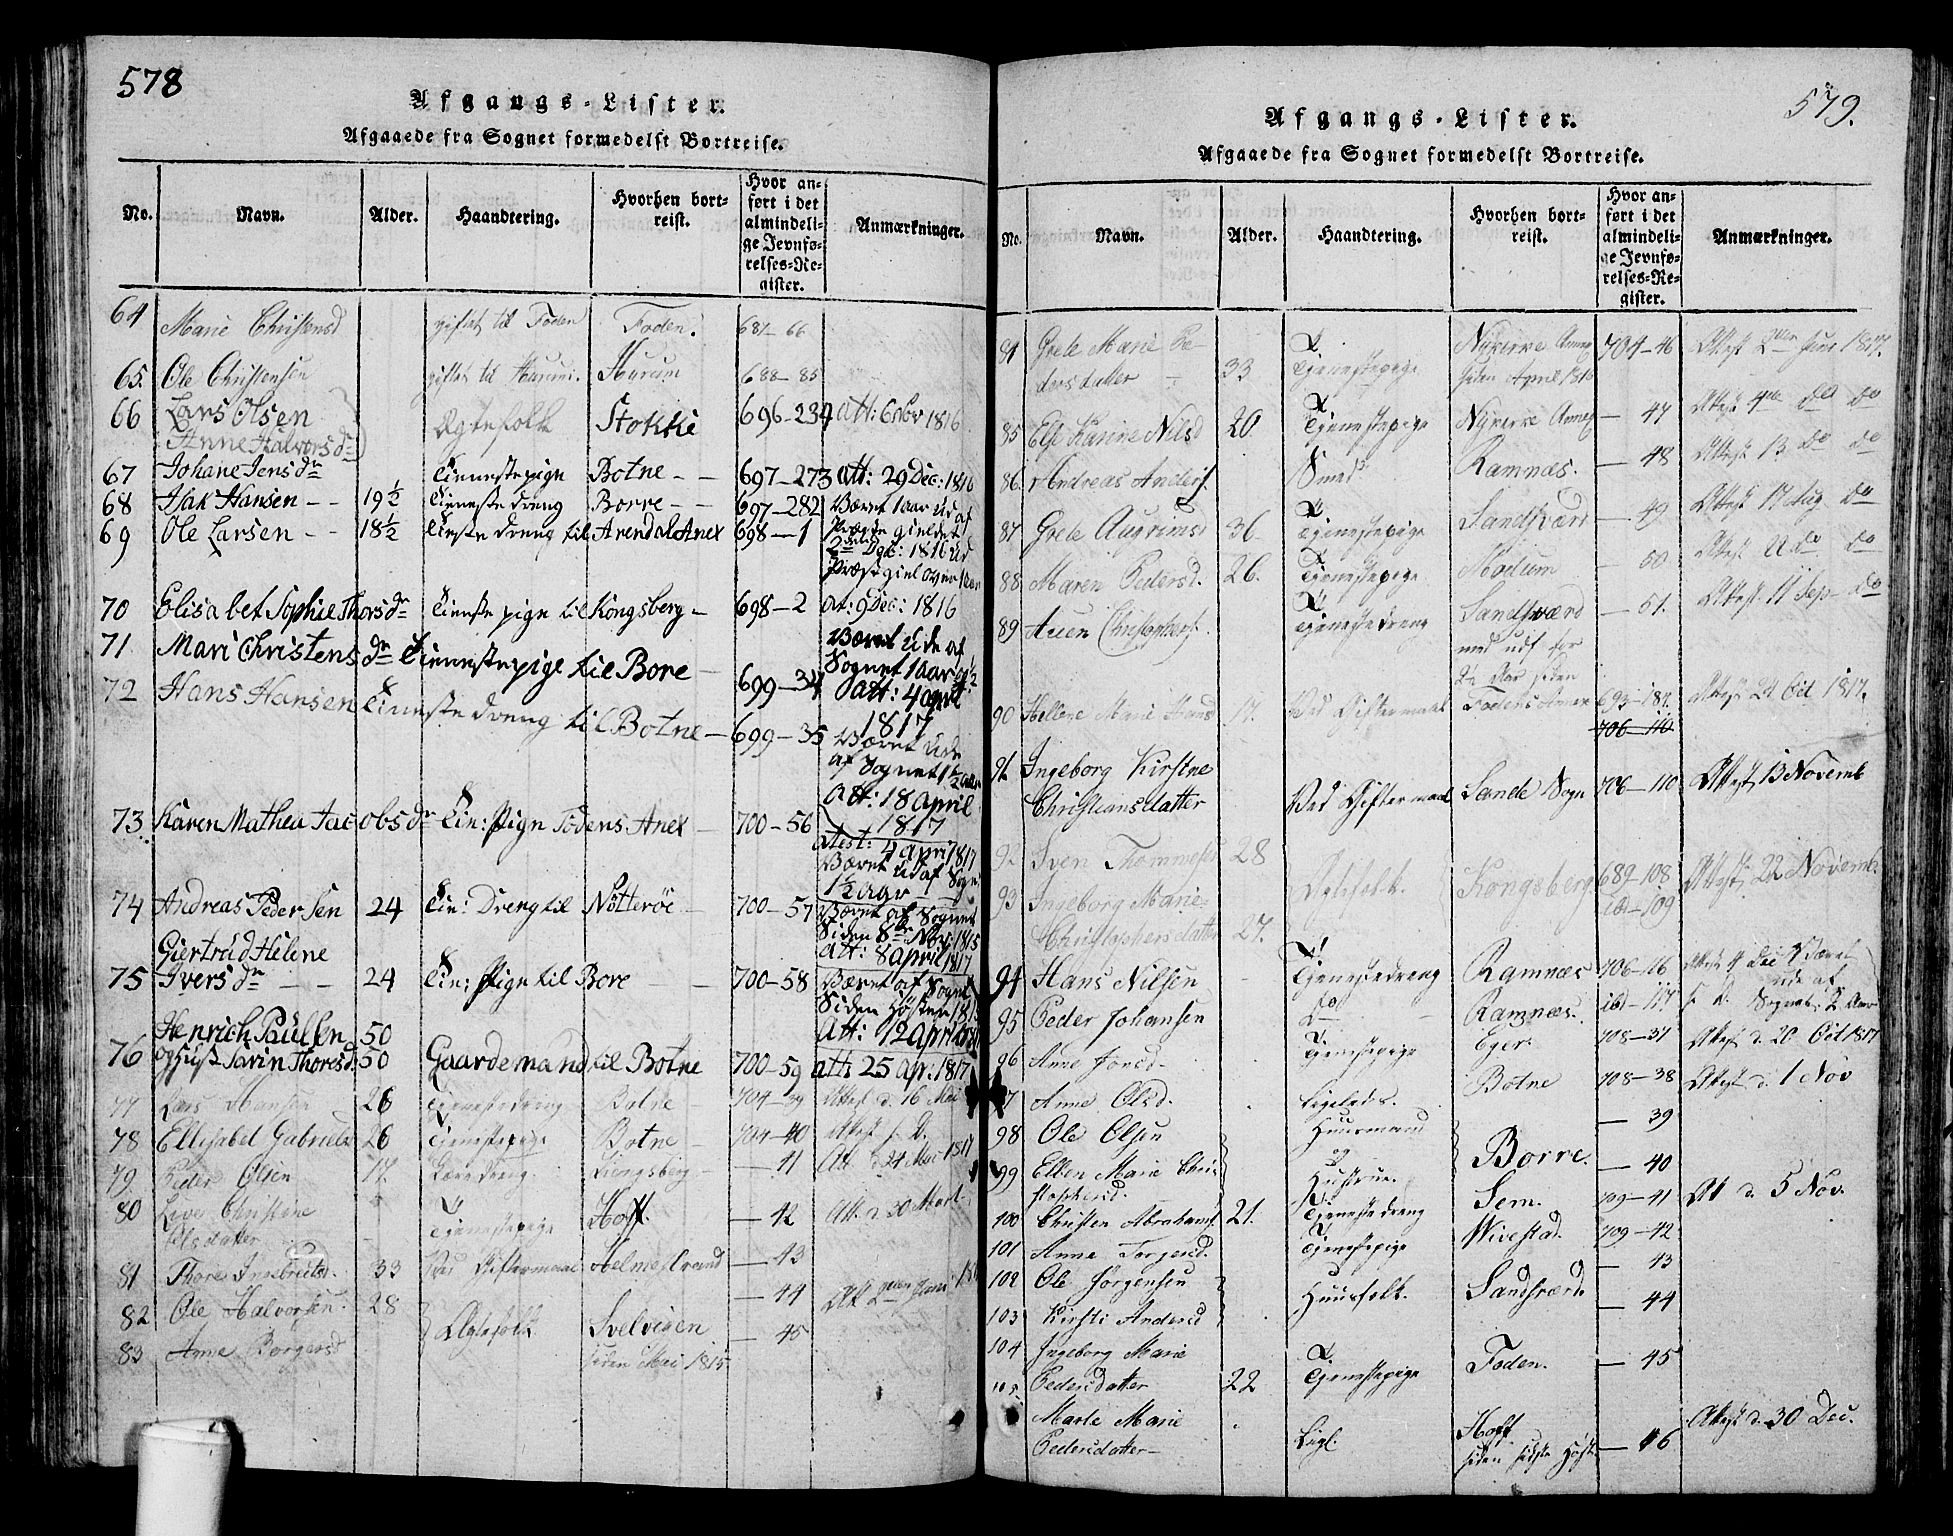 578
Afgangs-Lister.
Afgaaede fra Sognet formedelst Bortreise.
No. Navn. Alder. Haandtering. Hvorhen bortreist. Hvor anført i det almindelige Jevnførelses-Register. Anmærkninger.
64 Marie Christensd giftet til Foden Foden. 681-66
65. Ole Christensen giftet til Hurum. Hurum 688-85
66 Lars Olsen Ægtefolk Stokke 696-234 Att: 6 1816
Anne Halvorsdr
67 Johane Jensdr Tienestepige Botne - - 697-273 Att: 29 Dec: 1816
68 Isak Hansen - - 19½ Tieneste dreng Borre - - 697-282 Været 1 aar ud af
69 Ole Larsen - - 18½ Tieneste dreng til Arendal Anex 698-1 Præste gieldet
1816 ud
Præstegiel over 1 aar
70 Elisabet Sophie Thorsdr Tieneste pige til Kongsberg - 698-2 at: 9 Dec: 1816
71 Mari Christensdr Tienestepige til Bore - 699-34 Været ude af
Sognet 1 aar
Att: 4 april
1817
72 Hans Hansen Tieneste dreng til Botne - 699-35 Været ude
af Sognet 1½ aar
Att: 18 april
1817
73. Karen Mathea Jacobsdr Tin: Pige Fodens Anex - 700-56 atest: 4 april 1817
Været ud af Sogn
1½ aar
74 Andreas Pedersen 24 Tin: Dreng til Nötteröe - 700-57 Været af Sognet
Siden 8de Nov: 1815
Att: 8 april 1817
75 Giertrud Helene
Iversdr - - 24 Tin: Pige til Bore - - 700-58 Været af Sognet
Siden Høsten 1815
Att: 12 april
76 Henrich Paulsen 50
og Hust: Karin Thoresd. 50 Gaardemand til Botne 700-59 att: 25 Apr: 1817
77 Lars Hansen 26 Tjenestedreng Botne 704-39 Attest d. 16 Mai
78 Ellisabet Gabriels 26 Tjenestepige Botne - 704-40 Attest s. D.
79 Peder Olsen 17. Tjenestedreng. Kongsberg - - 41 Att. d 24 Mai 1817
80 Live Christine
Olsdatter - Tjenestepige Hoff. - 42 Att. d 30 Mart
81 Thore Ingebretsd. 33 Ved Giftermaal Holmestrand - 43
82 Ole Halvorsen. 28 Ægtefolk Svelvigen - 44 Att 2den Juni
83 Anne Borgersd siden Mai 1815 - 45

579.
Afgangs-Lister.
Afgaaede fra Sognet formedelst Bortreise.
No. Navn. Alder. Haandtering. Hvorhen bortreist. Hvor anført i det almindelige Jevnførelses-Register. Anmærkninger.
84 Grete Marie Pedersdatter - 33 Tjenestepige Nykirke Annex 704-46 Attest 2den Juni 1817.
siden April 1816
85 Else Karine Nilsd 20 Tjenestepige Nykirke Annex - 47 Attest 4de do do
86. Andreas Anders. Smed Ramnæs. - 48 Attest 13 do do
87 Grete Augrimsd 36 Tjenestepige Sandsværd - 49 Attest 17 Aug. do
88 Maren Pedersd. 26. Tjenestepige Modum - 50 Attest do do
89 Auen Christophers. Tjenestedreng Sandsværd - 51. Attest 11 Sep- do
med udf for
2½ Aar siden
90 Hellene Marie Hansd 17. Ved Giftermaal Fodens Annex 693-187. Attest 24 Oct 1817.
706-110
91 Ingeborg Kirstne
Christiansdatter Ved Giftermaal Sande Sogn 706-110 Attest 13 Novemb
92 Sven Thommesen 28 Ægtefolk. Kongsberg 689-108 Attest 22 Novemb.
93 Ingeborg Marie
Christophersdatter 27. 109
94 Hans Nilsen Tjenestedreng Ramnæs 706-116 Attest 4 Dec Været
ude af
95 Peder Johansen do Ramnæs. ibd-117 s. D. Sognet 2 Aar
96 Anne Jonsd. Tjenestepige Eger. 708-37 Attest d. 20 Oct 1817
97 Anne Olsd. Ligeledes. Botne 708-38 Attest d. 1 Nov
98 Ole Olsen Huusmand - 39
og
99 Ellen Marie Christophersd. Hustrue. Borre. - 40
100 Christen Abrahams. 21. Tjenestedreng Sem. 709-41 At d. 5 Nov.
101 Anne Torgersd. Tjenestepige Wivestad. 709-42
102 Ole Jørgensen Huusfolk. Sandsværd - 43
103 Kirsti Andersd - 44
104 Ingeborg Marie
Pedersdatter 22 Tjenestepige Foden. - 45
105. Marte Marie
Pedersdatter - Ligl. Hoff - 46 Attest d. 30 Dec.
siden sidste Høst